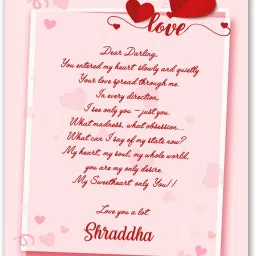 love
Dear Darling,
You entered my heart slowly and quietly
Your love spread through me.
In every direction,
I see only you – just you.
What madness, what obsession...
What can I say of my state now?
My heart, my soul, my whole world,
you are my only desire.
My Sweetheart only You!!
Love you a lot
Shraddha